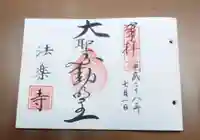 奉拝
平成二十八年
七月一日
大聖不動明王
法樂寺